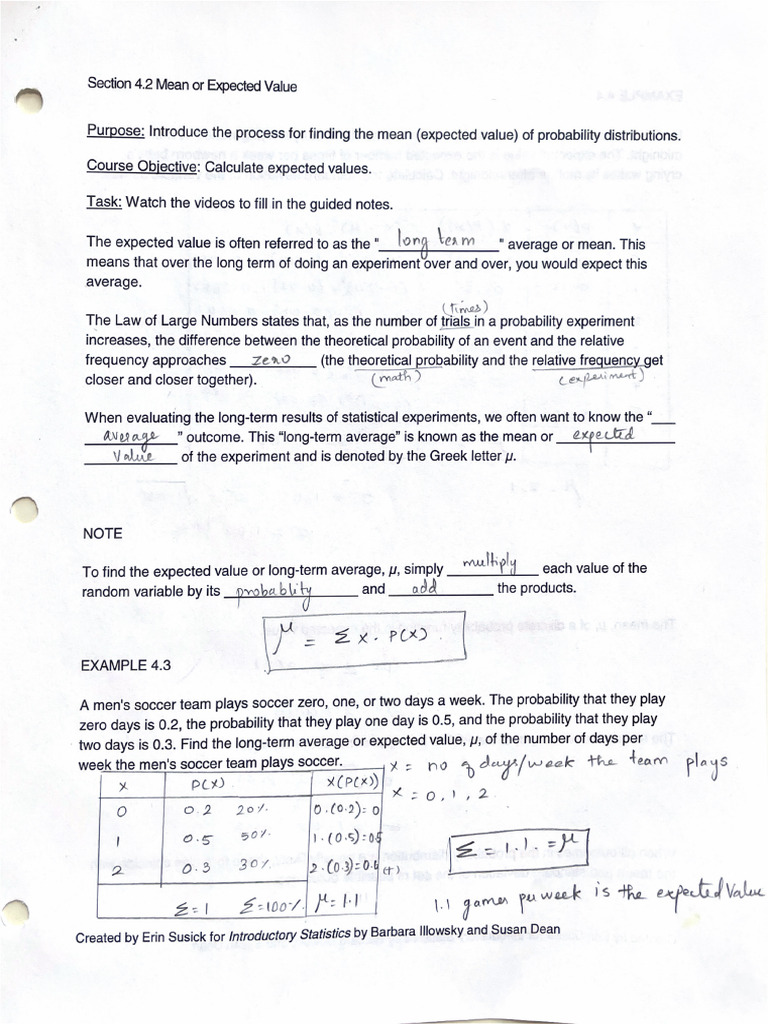 Section 4.2 Mean or Expected Value
Purpose: Introduce the process for finding the mean (expected value) of probability distributions.
Course Objective: Calculate expected values.
Task: Watch the videos to fill in the guided notes.
The expected value is often referred to as the " long term " average or mean. This
means that over the long term of doing an experiment over and over, you would expect this
average.
(times)
The Law of Large Numbers states that, as the number of trials in a probability experiment
increases, the difference between the theoretical probability of an event and the relative
frequency approaches zero (the theoretical probability and the relative frequency get
closer and closer together). (math) (experiment)
When evaluating the long-term results of statistical experiments, we often want to know the “
average ” outcome. This “long-term average” is known as the mean or expected
Value of the experiment and is denoted by the Greek letter μ.
NOTE
To find the expected value or long-term average, μ, simply multiply each value of the
random variable by its probablity and add the products.
μ = Σ x · P(x).
EXAMPLE 4.3
A men's soccer team plays soccer zero, one, or two days a week. The probability that they play
zero days is 0.2, the probability that they play one day is 0.5, and the probability that they play
two days is 0.3. Find the long-term average or expected value, μ, of the number of days per
week the men's soccer team plays soccer. x = no of days/week the team plays
x P(x) x(P(x)) x = 0, 1, 2
0 0.2 20% 0.(0.2)=0
1 0.5 50% 1.(0.5)=0.5 Σ = 1.1. = μ
2 0.3 30% 2.(0.3)=0.6 (+)
Σ=1 Σ=100% μ=1.1 1.1 games per week is the expected Value
Created by Erin Susick for Introductory Statistics by Barbara Illowsky and Susan Dean